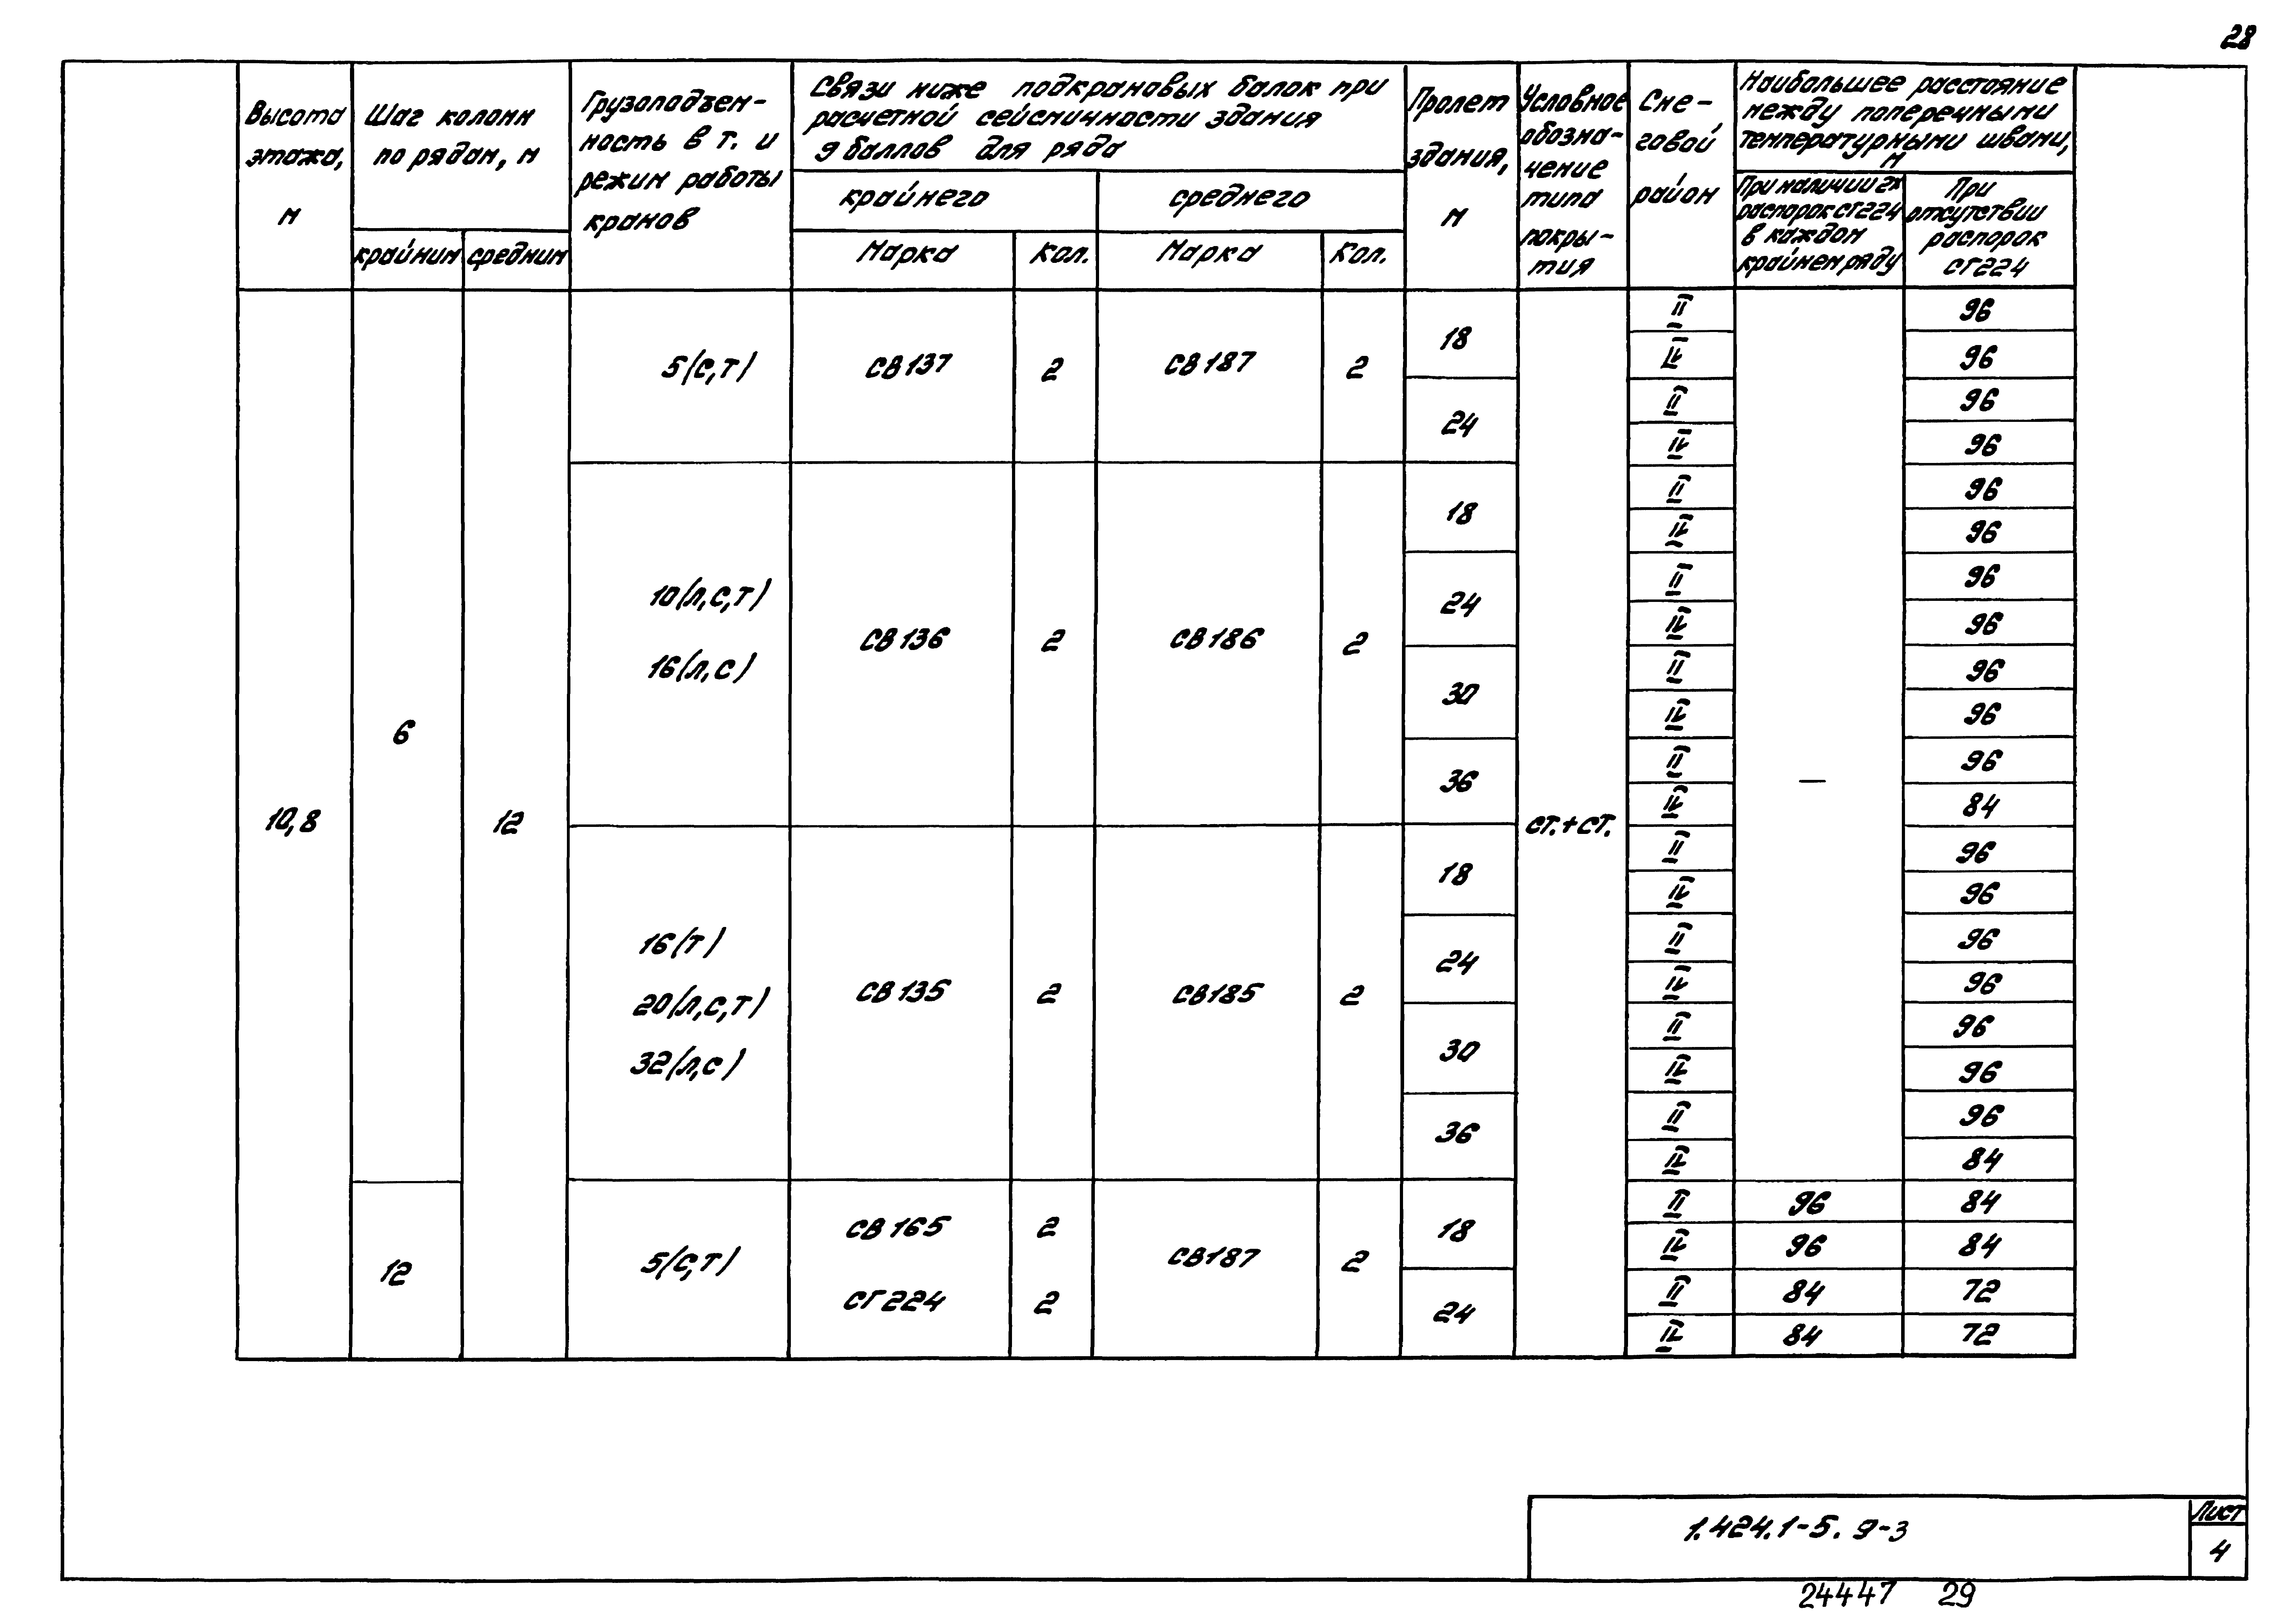 28
Высота этажа, м
Шаг колонн по рядам, м
крайним
средним
Грузоподъем-
ность в т. и
режим работы
кранов
Связи ниже подкрановых балок при
расчетной сейсмичности здания
9 баллов для ряда
крайнего
среднего
Марка
Кол.
Марка
Кол.
Пролет здания, м
Условное
обозна-
чение
типа
покры-
тия
Сне-
говой
район
Наибольшее расстояние
между поперечными
температурными швами,
м
При наличии 2х
распорок СГ224
в каждом
крайнем ряду
При
отсутствии
распорок
СГ224
10,8
6
12
ст.+ст.
—
5(С,Т)
СВ137
2
СВ187
2
18
II 96
IV 96
24
II 96
IV 96
10(Л,С,Т)
16(Л,С)
СВ136
2
СВ186
2
18
II 96
IV 96
24
II 96
IV 96
30
II 96
IV 96
36
II 96
IV 84
16(Т)
20(Л,С,Т)
32(Л,С)
СВ135
2
СВ185
2
18
II 96
IV 96
24
II 96
IV 96
30
II 96
IV 96
36
II 96
IV 84
12
5(С,Т)
СВ165 2
СГ224 2
СВ187
2
18
II 96 84
IV 96 84
24
II 84 72
IV 84 72
1.424.1-5. 9-3
Лист
4
24447 29